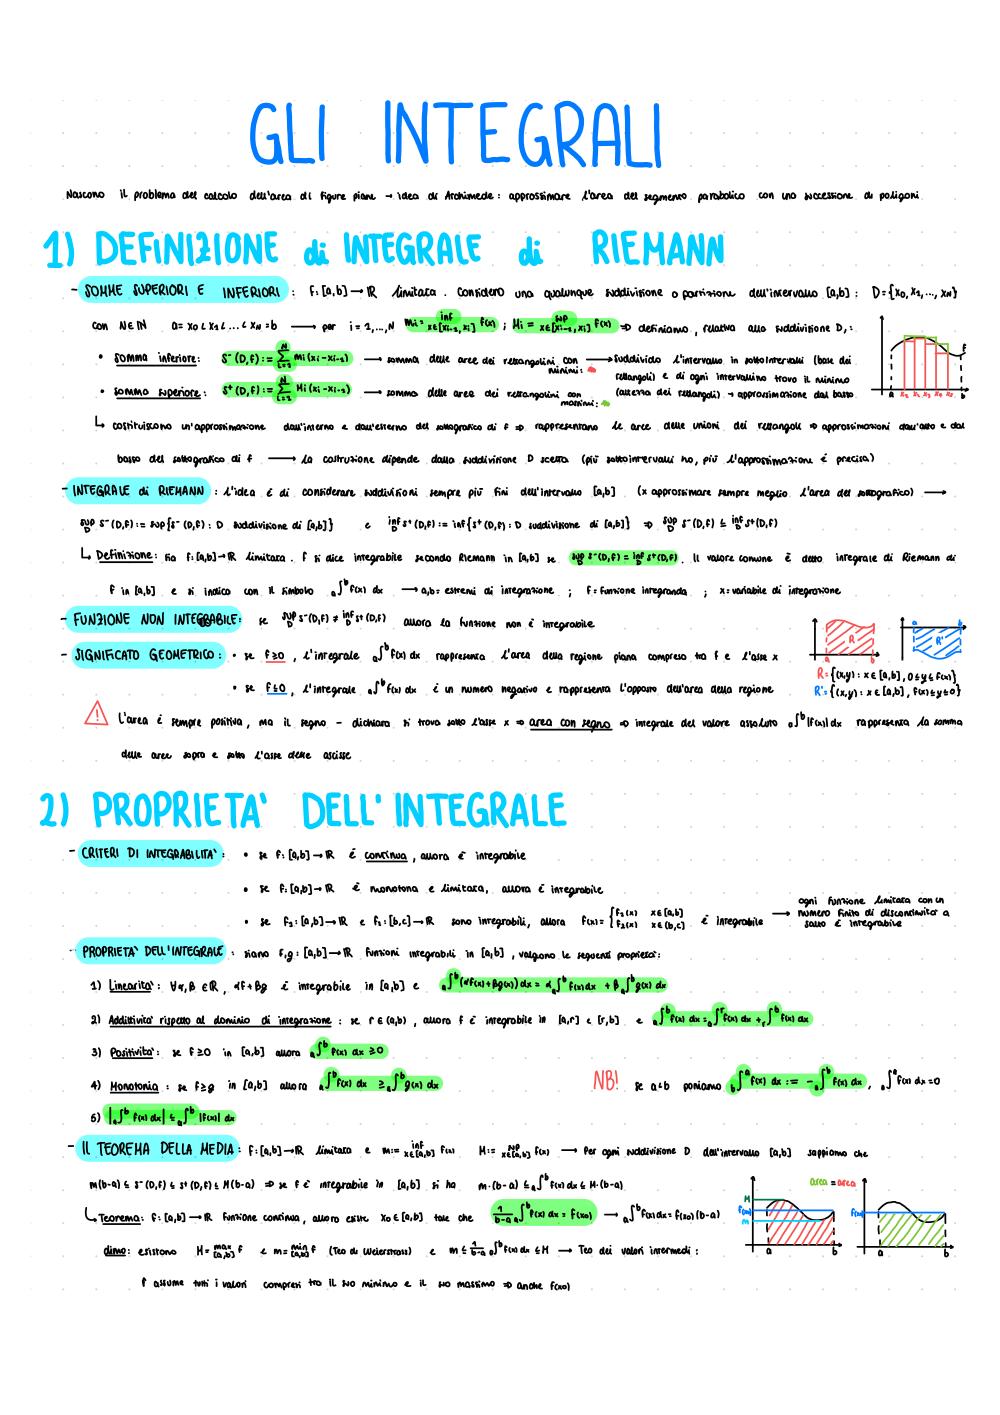 GLI INTEGRALI
Nascono il problema del calcolo dell'area di figure piane → idea di Archimede: approssimare l'area del segmento parabolico con una successione di poligoni
1) DEFINIZIONE di INTEGRALE di RIEMANN
- SOMME SUPERIORI E INFERIORI: f:[a,b]→ℝ limitata. Considero una qualunque suddivisione o partizione dell'intervallo [a,b]: D={x₀,x₁,...,x_N}
con N∈ℕ a=x₀<x₁<...<x_N=b → per i=1,...,N mi= inf x∈[xi-1,xi] f(x) ; Mi= sup x∈[xi-1,xi] f(x) ⇒ definiamo, relativa alla suddivisione D,:
• somma inferiore: s⁻(D,f):= Σ_{i=1}^{N} mi(xi-xi-1) → somma delle aree dei rettangolini con minimi: → suddivido l'intervallo in sottointervalli (base dei
rettangoli) e di ogni intervallino trovo il minimo
• somma superiore: s⁺(D,f):= Σ_{i=1}^{N} Mi(xi-xi-1) → somma delle aree dei rettangolini con massimi: (altezza dei rettangoli) → approssimazione dal basso
f
a x₁ x₂ x₃ x₄ x₅ b
↳ costituiscono un'approssimazione dall'interno e dall'esterno del sottografico di f ⇒ rappresentano le aree delle unioni dei rettangoli ⇒ approssimazioni dall'alto e dal
basso del sottografico di f → la costruzione dipende dalla suddivisione D scelta (più sottointervalli ho, più l'approssimazione è precisa)
- INTEGRALE di RIEMANN: l'idea è di considerare suddivisioni sempre più fini dell'intervallo [a,b] (x approssimare sempre meglio l'area del sottografico) →
sup_D s⁻(D,f):= sup{s⁻(D,f): D suddivisione di [a,b]} e inf_D s⁺(D,f):= inf{s⁺(D,f): D suddivisione di [a,b]} ⇒ sup_D s⁻(D,f) ≤ inf_D s⁺(D,f)
↳ Definizione: sia f:[a,b]→ℝ limitata. f si dice integrabile secondo Riemann in [a,b] se sup_D s⁻(D,f) = inf_D s⁺(D,f). Il valore comune è detto integrale di Riemann di
f in [a,b] e si indica con il simbolo ₐ∫ᵇ f(x) dx → a,b= estremi di integrazione ; f= funzione integranda ; x= variabile di integrazione
- FUNZIONE NON INTEGRABILE: se sup_D s⁻(D,f) ≠ inf_D s⁺(D,f) allora la funzione non è integrabile
- SIGNIFICATO GEOMETRICO: • se f≥0, l'integrale ₐ∫ᵇ f(x) dx rappresenta l'area della regione piana compresa tra f e l'asse x
R a b
R' a b
R={(x,y): x∈[a,b], 0≤y≤f(x)}
• se f≤0, l'integrale ₐ∫ᵇ f(x) dx è un numero negativo e rappresenta l'opposto dell'area della regione
R'={(x,y): x∈[a,b], f(x)≤y≤0}
! L'area è sempre positiva, ma il segno - dichiara si trova sotto l'asse x ⇒ area con segno ⇒ integrale del valore assoluto ₐ∫ᵇ |f(x)| dx rappresenta la somma
delle aree sopra e sotto l'asse delle ascisse
2) PROPRIETA' DELL'INTEGRALE
- CRITERI DI INTEGRABILITA': • se f:[a,b]→ℝ è continua, allora è integrabile
• se f:[a,b]→ℝ è monotona e limitata, allora è integrabile
• se f₁:[a,b]→ℝ e f₂:[b,c]→ℝ sono integrabili, allora f(x)= { f₁(x) x∈[a,b] f₂(x) x∈(b,c) è integrabile → ogni funzione limitata con un numero finito di discontinuità a salto è integrabile
- PROPRIETA' DELL'INTEGRALE: siano f,g:[a,b]→ℝ funzioni integrabili in [a,b], valgono le seguenti proprietà:
1) Linearità: ∀α,β∈ℝ, αf+βg è integrabile in [a,b] e ₐ∫ᵇ (αf(x)+βg(x)) dx = α ₐ∫ᵇ f(x) dx + β ₐ∫ᵇ g(x) dx
2) Addittività rispetto al dominio di integrazione: se r∈(a,b), allora f è integrabile in [a,r] e [r,b] e ₐ∫ᵇ f(x) dx = ₐ∫ʳ f(x) dx + ᵣ∫ᵇ f(x) dx
3) Positività: se f≥0 in [a,b] allora ₐ∫ᵇ f(x) dx ≥0
4) Monotonia: se f≥g in [a,b] allora ₐ∫ᵇ f(x) dx ≥ ₐ∫ᵇ g(x) dx NB! se a<b poniamo b∫ᵃ f(x) dx := - ₐ∫ᵇ f(x) dx, ₐ∫ᵃ f(x) dx=0
5) |ₐ∫ᵇ f(x) dx| ≤ ₐ∫ᵇ |f(x)| dx
- IL TEOREMA DELLA MEDIA: f:[a,b]→ℝ limitata e m:= inf x∈[a,b] f(x) M:= sup x∈[a,b] f(x) → Per ogni suddivisione D dell'intervallo [a,b] sappiamo che
m(b-a) ≤ s⁻(D,f) ≤ s⁺(D,f) ≤ M(b-a) ⇒ se f è integrabile in [a,b] si ha m·(b-a) ≤ ₐ∫ᵇ f(x) dx ≤ M·(b-a)
area = area
M f(x₀) m a b
f(x₀) a b
↳ Teorema: f:[a,b]→ℝ funzione continua, allora esiste x₀∈[a,b] tale che 1/(b-a) ₐ∫ᵇ f(x) dx = f(x₀) → ₐ∫ᵇ f(x) dx= f(x₀)(b-a)
dimo: esistono M= max [a,b] f e m= min [a,b] f (Teo di Weierstrass) e m ≤ 1/(b-a) ₐ∫ᵇ f(x) dx ≤ M → Teo dei valori intermedi:
f assume tutti i valori compresi tra il suo minimo e il suo massimo ⇒ anche f(x₀)